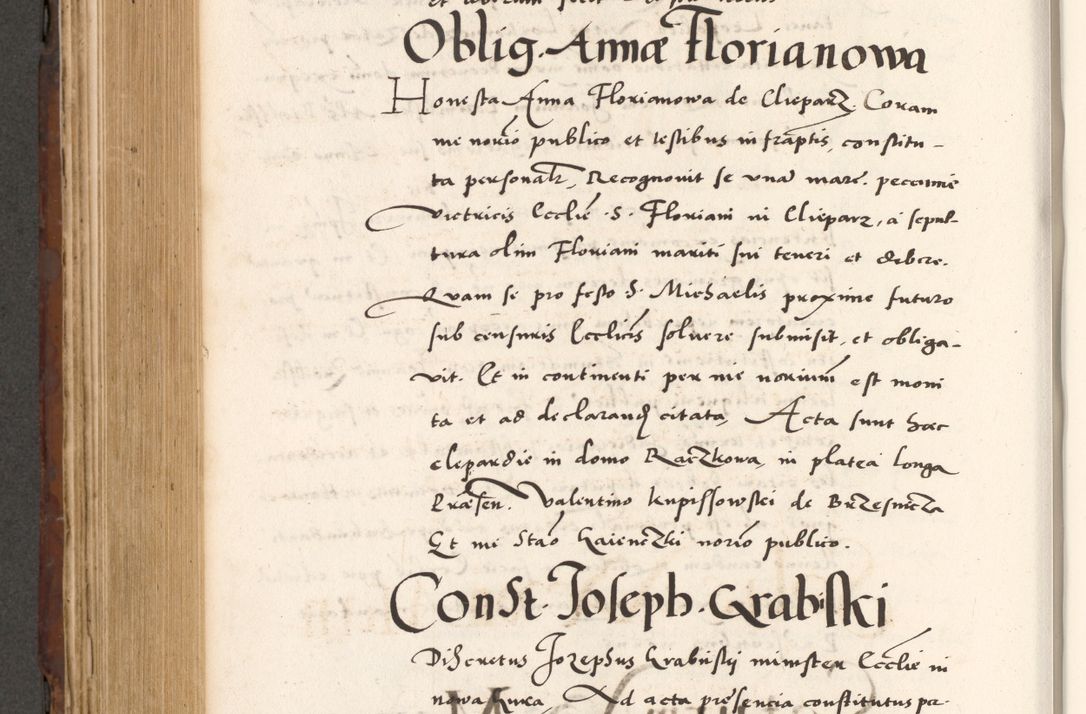 Oblig. Annæ Florianowa
Honesta Anna Florianowa de Cleparz. Coram
me norio publico et testibus infraptis, constitu-
ta personalr, Recognovit se una marc. pecunie
victricis Ecclie S. Floriani in Cleparz, a sepul-
tura olim Floriani mariti sui teneri et debere.
Quam se pro festo S. Michaelis proxime futuro
sub censuris Ecclicis solvere submisit, et obliga-
vit. Et in continenti per me norium est moni
ta et ad declarand citata, Acta sunt haec
clepardie in domo Raczkowa, in platea longa
Præsen. Valentino kupissowski de Brzesnicza
Et me Stao kaienczki norio publico.
Const. Joseph. Grabski
Discretus Jozephus Grabinskij minister Ecclie in
nowa Ad acta presencia constitutus pe-